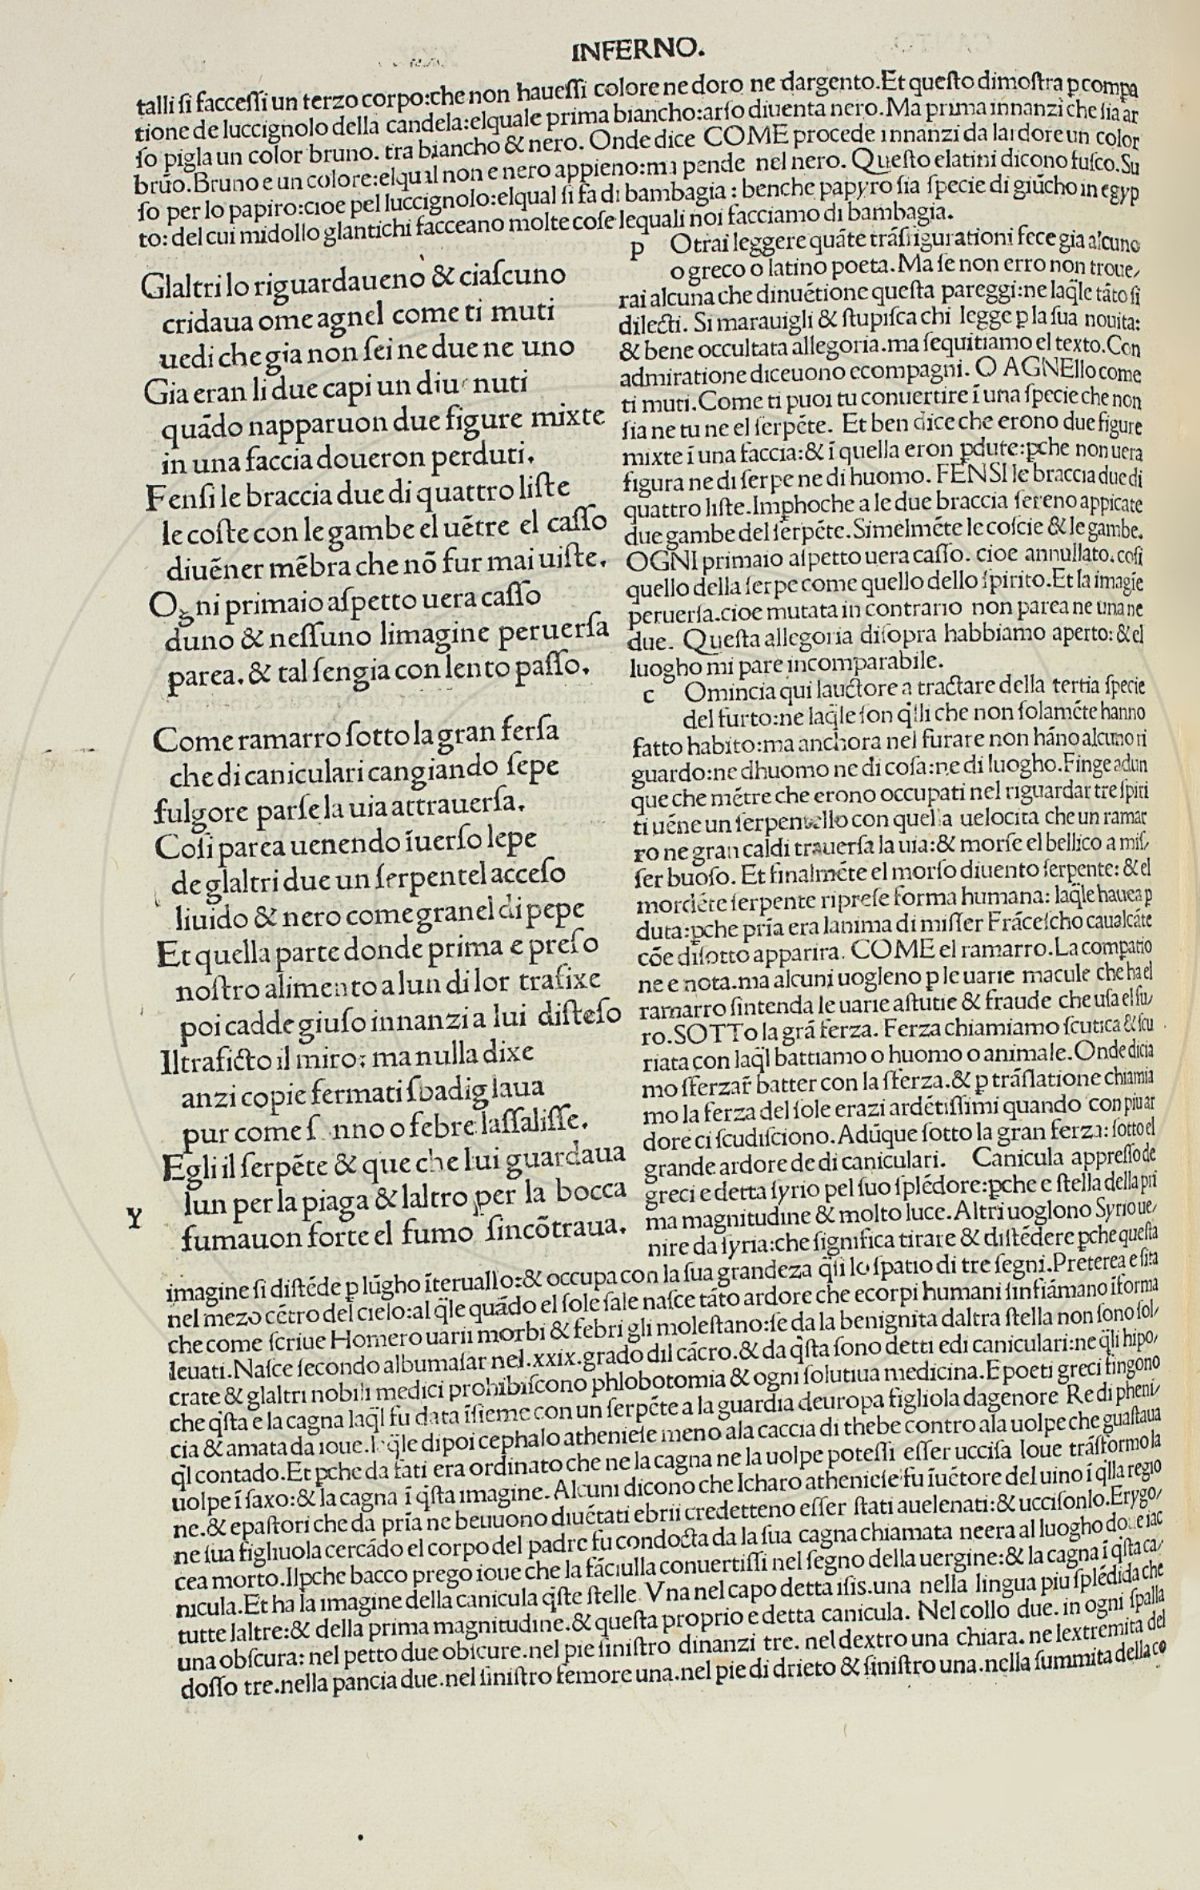 INFERNO.
talli ſi faceſſi un terzo corpo:che non haueſſi colore ne doro ne dargento.Et queſto dimoſtra ꝑ compa
tione de luccignolo della candela:elquale prima biancho:arſo diuenta nero.Ma prima innanzi che ſia ar
ſo pigla un color bruno. tra biancho & nero. Onde dice COME procede innanzi da lardore un color
brūo.Bruno e un colore:elqual non e nero appieno:ma pende nel nero. Queſto elatini dicono fuſco.Su
ſo per lo papiro:cioe pel luccignolo:elqual ſi fa di bambagia : benche papyro ſia ſpecie di giūcho in egyp
to: del cui midollo glantichi faceano molte coſe lequali noi facciamo di bambagia.
Glaltri lo riguardaueno & ciaſcuno
cridaua ome agnel come ti muti
uedi che gia non ſei ne due ne uno
Gia eran li due capi un diuenuti
quādo napparuon due figure mixte
in una faccia doueron perduti.
Fenſi le braccia due di quattro liſte
le coſte con le gambe el uētre el caſſo
diuēner mēbra che nō fur mai uiſte.
Ogni primaio aſpetto uera caſſo
duno & neſſuno limagine peruerſa
parea. & tal ſengia con lento paſſo.
Come ramarro ſotto la gran ferſa
che di caniculari cangiando ſepe
fulgore parſe la uia attrauerſa.
Coſi parea uenendo īuerſo lepe
de glaltri due un ſerpentel acceſo
liuido & nero come granel di pepe
Et quella parte donde prima e preſo
noſtro alimento alun di lor trafixe
poi cadde giuſo innanzi a lui diſteſo
Il traficto il miro: ma nulla dixe
anzi co pie fermati ſbadiglaua
pur come ſonno o febre laſſaliſſe.
Egli il ſerpēte & que che lui guardaua
lun per la piaga & laltro per la bocca
Y
fumauon forte el fumo ſincōtraua.
p Otrai leggere quāte trāſfigurationi fece gia alcuno
o greco o latino poeta.Ma ſe non erro non troue/
rai alcuna che dinuētione queſta pareggi:ne laq̄le tāto ſi
dilecti. Si marauigli & ſtupiſca chi legge ꝑ la ſua nouita:
& bene occultata allegoria.ma ſequitiamo el texto.Con
admiratione diceuono ecompagni. O AGNEllo come
ti muti.Come ti puoi tu conuertire ī una ſpecie che non
ſia ne tu ne el ſerpēte. Et ben dice che erono due figure
mixte ī una faccia:& ī quella eron ꝑdute:ꝑche non uera
figura ne di ſerpe ne di huomo. FENSI le braccia due di
quattro liſte.Imphoche a le due braccia ſereno appicate
due gambe del ſerpēte.Simelmēte le coſcie & le gambe.
OGNI primaio aſpetto uera caſſo. cioe annullato.coſi
quello della ſerpe come quello dello ſpirito.Et la imagīe
peruerſa.cioe mutata in contrario non parea ne una ne
due. Queſta allegoria diſopra habbiamo aperto: & el
luogho mi pare incomparabile.
c Omincia qui lauctore a tractare della tertia ſpecie
del furto:ne laq̄le ſon q̄lli che non ſolamēte hanno
fatto habito:ma anchora nel furare non hāno alcuno ri
guardo:ne dhuomo ne di coſa:ne di luogho.Finge adun
que che mētre che erono occupati nel riguardar tre ſpiri
ti uēne un ſerpentello con quella uelocita che un ramar
ro ne gran caldi trauerſa la uia:& morſe el bellico a miſ/
ſer buoſo. Et finalmēte el morſo diuento ſerpente: & el
mordēte ſerpente ripreſe forma humana: laq̄le hauea ꝑ
duta:ꝑche pria era lanima di miſſer Frāceſcho caualcāte
cōe diſotto apparira. COME el ramarro.La compatio
ne e nota.ma alcuni uogleno ꝑ le uarie macule che ha el
ramarro ſintenda le uarie aſtutie & fraude che uſa el fu/
ro.SOTTo la grā ferza. Ferza chiamiamo ſcutica & ſcu
riata con laq̄l battiamo o huomo o animale.Onde dicia
mo ſferzar batter con la ſferza.& ꝑ trāſlatione chiamia
mo la ferza del ſole erazi ardētiſſimi quando con piu ar
dore ci ſcudiſciono.Adūque ſotto la gran ferza: ſotto el
grande ardore de di caniculari. Canicula appreſſo de
greci e detta ſyrio pel ſuo ſplēdore:ꝑche e ſtella della pri
ma magnitudine & molto luce.Altri uoglono Syrio ue/
nire da ſyria:che ſignifica tirare & diſtēdere ꝑche queſta
imagine ſi diſtēde ꝑ lūgho īteruallo:& occupa con la ſua grandeza q̄ſi lo ſpatio di tre ſegni.Preterea e ſita
nel mezo cētro del cielo:al q̄le quādo el ſole ſale naſce tāto ardore che ecorpi humani ſinfiāmano īforma
che come ſcriue Homero uarii morbi & febri gli moleſtano:ſe da la benignita daltra ſtella non ſono ſol/
leuati.Naſce ſecondo albumaſar nel.xxix.grado dil cācro.& da q̄ſta ſono detti edi caniculari:ne q̄li hipo/
crate & glaltri nobili medici prohibiſcono phlobotomia & ogni ſolutiua medicina.E poeti greci fingono
che q̄ſta e la cagna laq̄l fu data īſieme con un ſerpēte a la guardia deuropa figliola dagenore Re di pheni/
cia & amata da ioue.laq̄le dipoi cephalo athenieſe meno ala caccia di thebe contro ala uolpe che guaſtaua
q̄l contado.Et ꝑche da fati era ordinato che ne la cagna ne la uolpe poteſſi eſſer ucciſa Ioue trāſformo la
uolpe ī ſaxo:& la cagna ī q̄ſta imagine. Alcuni dicono che Icharo athenieſe fu īuētore del uino ī q̄lla regio
ne.& epaſtori che da pria ne beuuono diuētati ebrii credetteno eſſer ſtati auelenati:& ucciſonlo.Erygo/
ne ſua figliuola cercādo el corpo del padre fu condocta da la ſua cagna chiamata neera al luogho doue iac
cea morto.Ilꝑche bacco prego ioue che la fāciulla conuertiſſi nel ſegno della uergine:& la cagna ī q̄ſta ca/
nicula.Et ha la imagine della canicula q̄ſte ſtelle. Vna nel capo detta iſis.una nella lingua piu ſplēdida che
tutte laltre:& della prima magnitudine.& queſta proprio e detta canicula. Nel collo due. in ogni ſpalla
una obſcura: nel petto due obſcure.nel pie ſiniſtro dinanzi tre. nel dextro una chiara. ne lextremita del
doſſo tre.nella pancia due.nel ſiniſtro femore una.nel pie di drieto & ſiniſtro una.nella ſummita della co